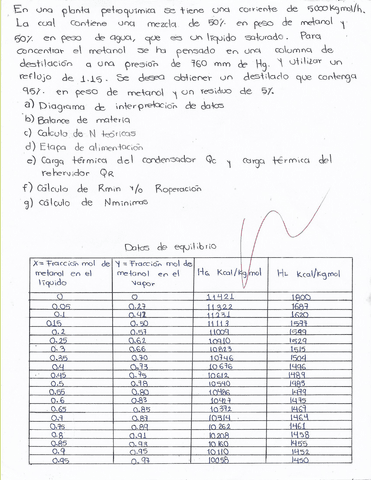 En una planta petroquimica se tiene una corriente de 5000 kgmol/h.
La cual contiene una mezcla de 50% en peso de metanol y
50% en peso de agua, que es un liquido saturado. Para
concentrar el metanol se ha pensado en una columna de
destilación a una presión de 760 mm de Hg. Y utilizar un
reflujo de 1.15. Se desea obtiener un destilado que contenga
95% en peso de metanol y un residuo de 5%.
a) Diagrama de interpretación de datos
b) Balance de materia
c) Calculo de N teóricas
d) Etapa de alimentación
e) Carga térmica del condensador Qc y carga térmica del
rehervidor QR
f) Cálculo de Rmin y/o Roperación
g) cálculo de Nminimos
Datos de equilibrio
X= Fracción mol de metanol en el liquido Y= Fracción mol de metanol en el vapor HG Kcal/kgmol HL Kcal/kgmol
0 0 11421 1800
0.05 0.27 11322 1687
0.1 0.42 11231 1620
0.15 0.50 11113 1573
0.2 0.57 11009 1549
0.25 0.62 10910 1529
0.3 0.66 10823 1515
0.35 0.70 10746 1504
0.4 0.73 10676 1496
0.45 0.75 10612 1489
0.5 0.78 10540 1485
0.55 0.80 1479
0.6 0.83 1475
0.65 0.85 10372 1467
0.7 0.87 10314 1464
0.75 0.89 10262 1461
0.8 0.91 10208 1458
0.85 0.93 10160 1455
0.9 0.95 10110 1452
0.95 0.97 10058 1450